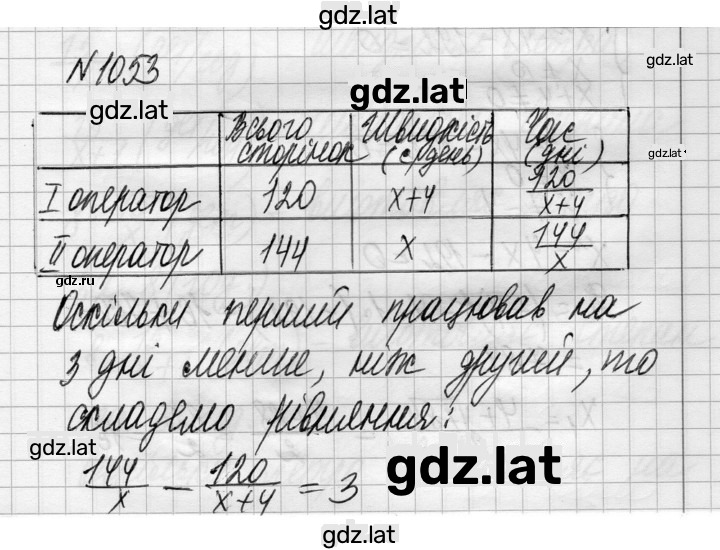 gdz.lat
gdz.lat
N 1053
gdz.lat
gdz.lat
Всього сторінок Швидкість (с/день) Час (дні)
gdz.lat
I оператор 120 x+4 120/x+4
II оператор 144 x 144/x
gdz.ru
Оскільки перший працював на
3 дні менше, ніж другий, то
складемо рівняння:
gdz.lat
gdz.lat
144/x - 120/x+4 = 3
gdz.lat